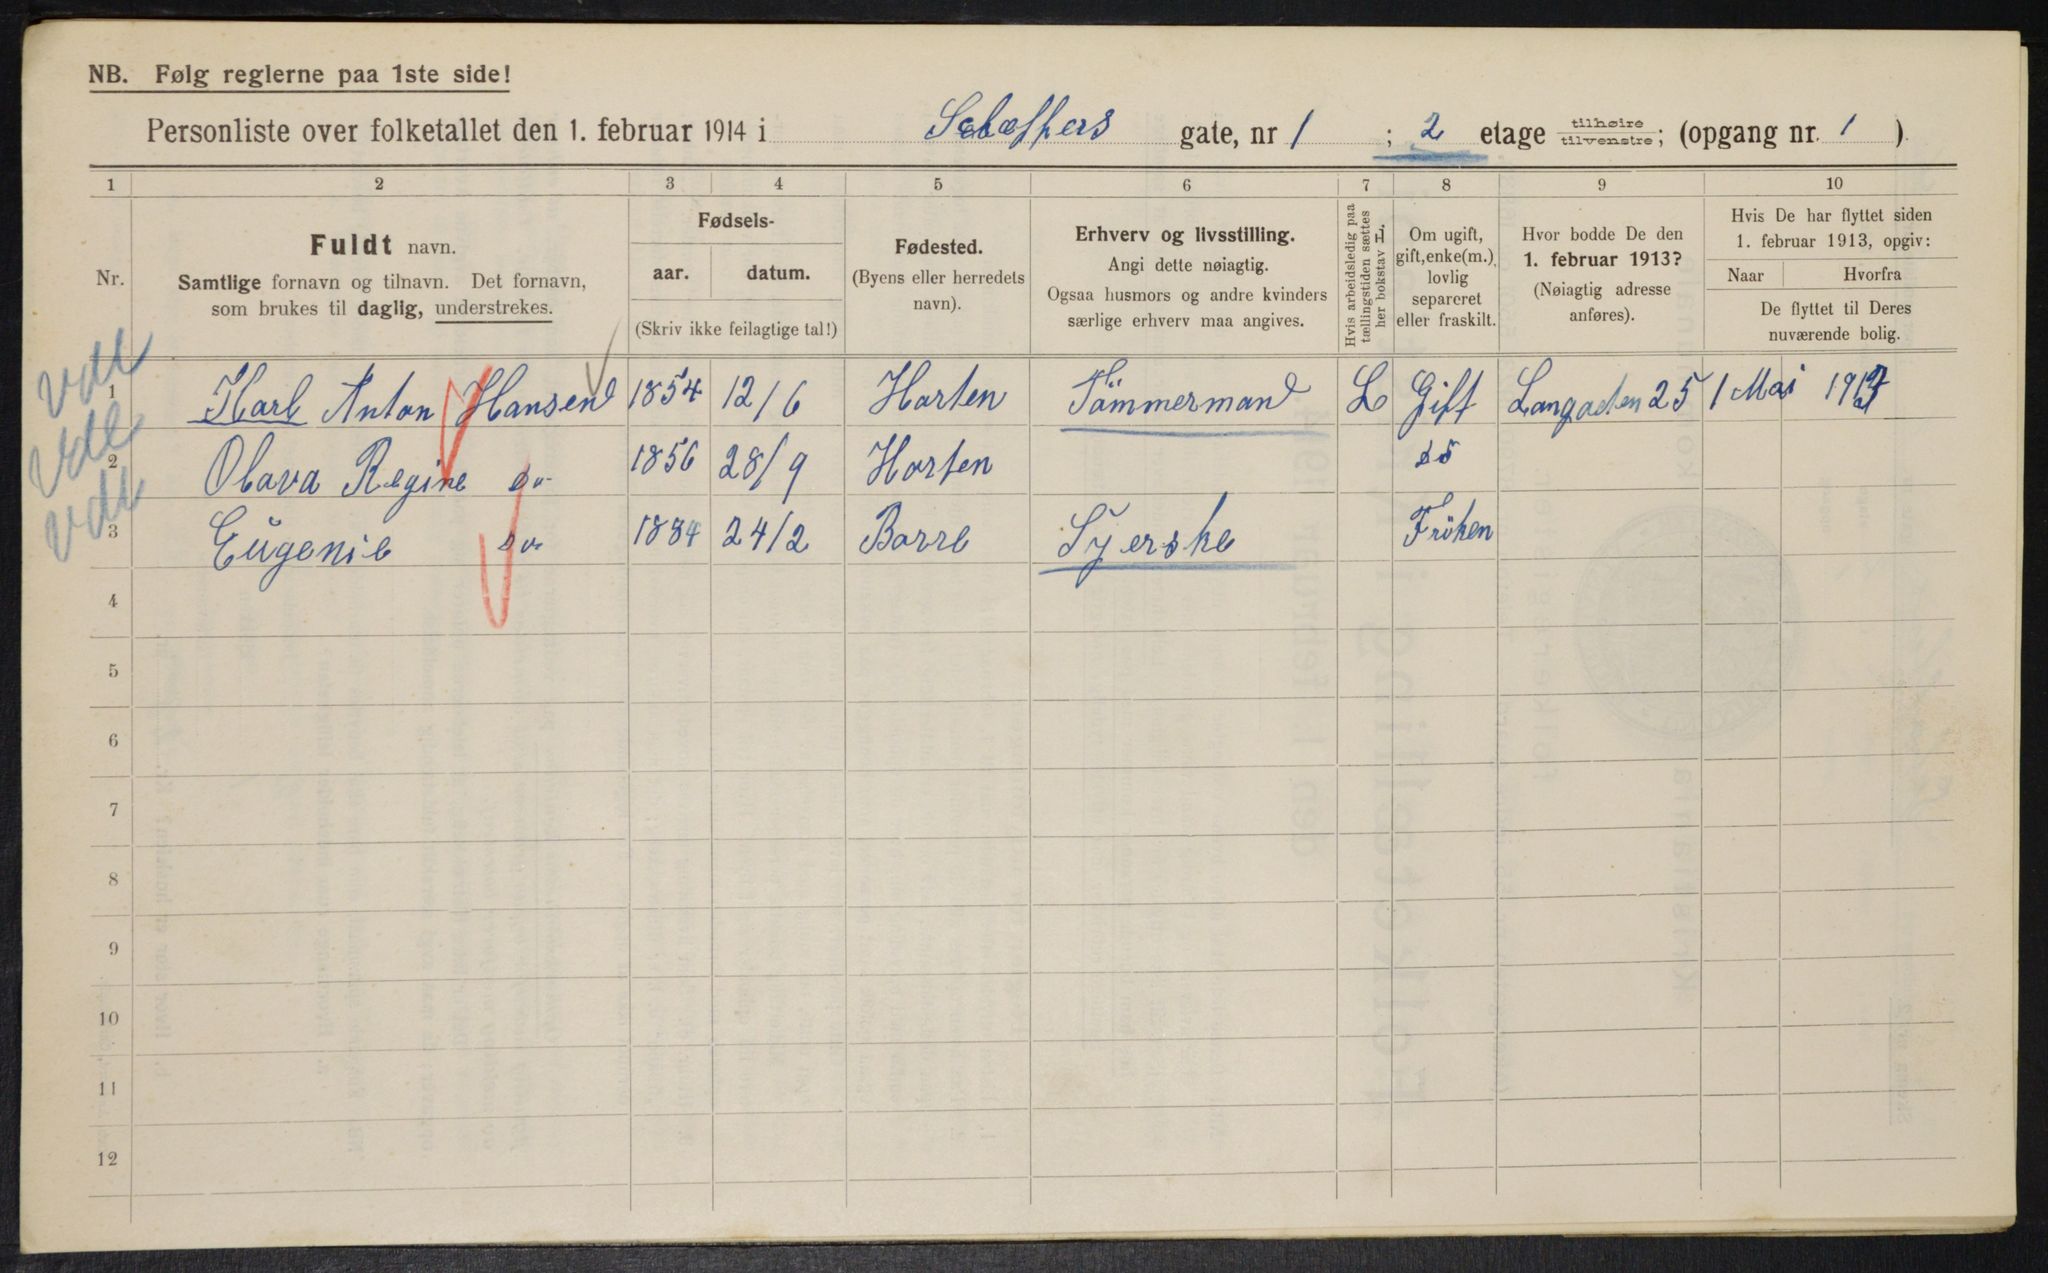 NB. Følg reglerne paa 1ste side!
Personliste over folketallet den 1. februar 1914 i Schæffers gate, nr 1 ; 2 etage tilhøire / tilvenstre; (opgang nr. 1 ).
1 2 3 4 5 6 7 8 9 10
Nr.
Fuldt navn.
Samtlige fornavn og tilnavn. Det fornavn,
som brukes til daglig, understrekes.
Fødsels-
aar. datum.
(Skriv ikke feilagtige tal!)
Fødested.
(Byens eller herredets
navn).
Erhverv og livsstilling.
Angi dette nøiagtig.
Ogsaa husmors og andre kvinders
særlige erhverv maa angives.
Hvis arbeidsledig paa
tællingstiden sættes
her bokstav L.
Om ugift,
gift, enke(m.),
lovlig
separeret
eller fraskilt.
Hvor bodde De den
1. februar 1913?
(Nøiagtig adresse
anføres).
Hvis De har flyttet siden
1. februar 1913, opgiv:
Naar Hvorfra
De flyttet til Deres
nuværende bolig.
1 Karl Anton Hansen 1854 12/6 Horten Tömmermand L Gift Langaden 25 1 Mai 1913
2 Olava Regine do 1856 28/9 Horten do
3 Eugenie do 1884 24/2 Borre Syerske Fröken
4
5
6
7
8
9
10
11
12